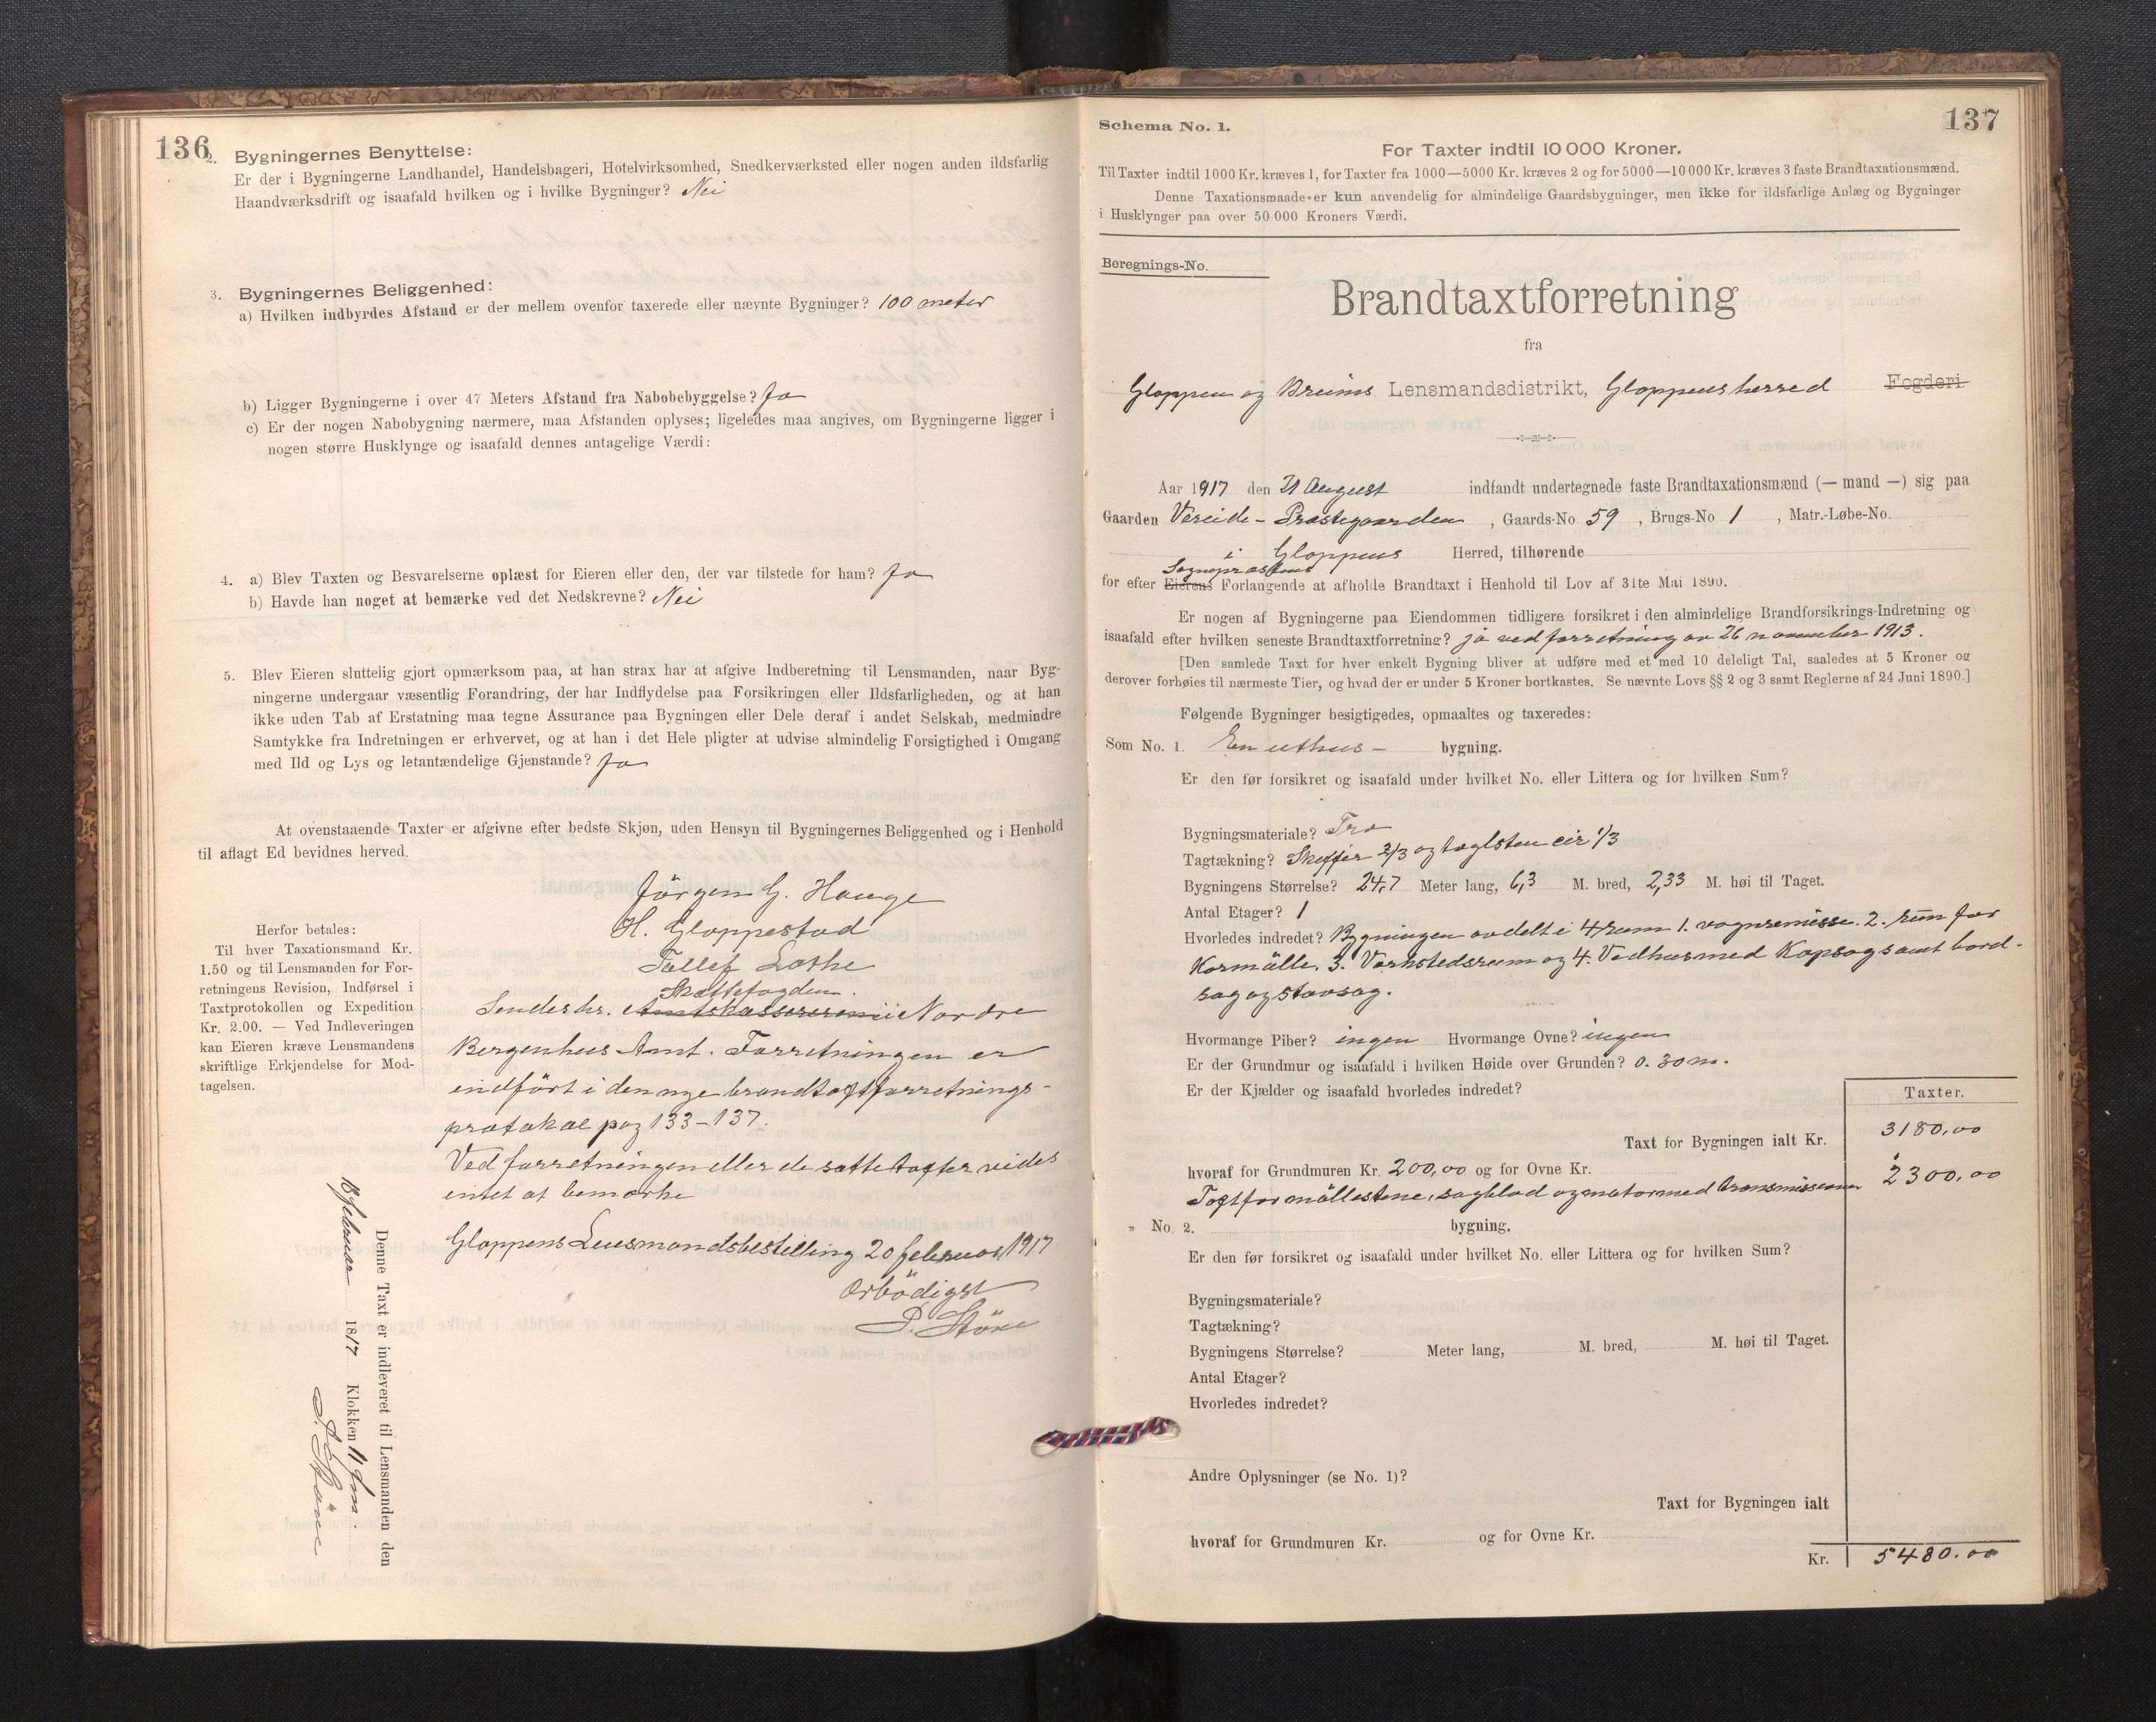 136
2. Bygningernes Benyttelse:
Er der i Bygningerne Landhandel, Handelsbageri, Hotelvirksomhed, Snedkerværksted eller nogen anden ildsfarlig
Haandværksdrift og isaafald hvilken og i hvilke Bygninger? Nei
3. Bygningernes Beliggenhed:
a) Hvilken indbyrdes Afstand er der mellem ovenfor taxerede eller nævnte Bygninger? 100 meter
b) Ligger Bygningerne i over 47 Meters Afstand fra Nabobebyggelse? Ja
c) Er der nogen Nabobygning nærmere, maa Afstanden oplyses; ligeledes maa angives, om Bygningerne ligger i
nogen større Husklynge og isaafald dennes antagelige Værdi:
4. a) Blev Taxten og Besvarelserne oplæst for Eieren eller den, der var tilstede for ham? Ja
b) Havde han noget at bemærke ved det Nedskrevne? Nei
5. Blev Eieren sluttelig gjort opmærksom paa, at han strax har at afgive Indberetning til Lensmanden, naar Byg-
ningerne undergaar væsentlig Forandring, der har Indflydelse paa Forsikringen eller Ildsfarligheden, og at han
ikke uden Tab af Erstatning maa tegne Assurance paa Bygningen eller Dele deraf i andet Selskab, medmindre
Samtykke fra Indretningen er erhvervet, og at han i det Hele pligter at udvise almindelig Forsigtighed i Omgang
med Ild og Lys og letantændelige Gjenstande? Ja
At ovenstaaende Taxter er afgivne efter bedste Skjøn, uden Hensyn til Bygningernes Beliggenhed og i Henhold
til aflagt Ed bevidnes herved.
Jörgen G. Hauge
H. Gloppestad
Tollef Lothe
Herfor betales:
Til hver Taxationsmand Kr.
1.50 og til Lensmanden for For-
retningens Revision, Indførsel i
Taxtprotokollen og Expedition
Kr. 2.00. — Ved Indleveringen
kan Eieren kræve Lensmandens
skriftlige Erkjendelse for Mod-
tagelsen.
Skattefogden
Sendes hr. Amtskassereren i Nordre
Bergenhus Amt. Forretningen er
indfört i den nye brandtaxtforretnings-
protokol pag 133-137.
Ved forretningen eller de satte taxter vides
intet at bemærke
Gloppens Lensmandsbestilling 20 februar 1917
Ærbödigst
Denne Taxt er indleveret til Lensmanden den
18 februar 1817 Klokken 11 fm.
137
Schema No. 1.
For Taxter indtil 10 000 Kroner.
Til Taxter indtil 1000 Kr. kræves 1, for Taxter fra 1000—5000 Kr. kræves 2 og for 5000—10 000 Kr. kræves 3 faste Brandtaxationsmænd.
Denne Taxationsmaade er kun anvendelig for almindelige Gaardsbygninger, men ikke for ildsfarlige Anlæg og Bygninger
i Husklynger paa over 50 000 Kroners Værdi.
Beregnings-No.
Brandtaxtforretning
fra
Gloppen og Breims Lensmandsdistrikt, Gloppens herred Fogderi
Aar 1917 den 21 August indfandt undertegnede faste Brandtaxationsmænd (— mand —) sig paa
Gaarden Vereide - Præstegaarden, Gaards-No. 59, Brugs-No 1, Matr.-Løbe-No.
i Gloppens Herred, tilhørende
Sogneprestens
for efter Eierens Forlangende at afholde Brandtaxt i Henhold til Lov af 31te Mai 1890.
Er nogen af Bygningerne paa Eiendommen tidligere forsikret i den almindelige Brandforsikrings-Indretning og
isaafald efter hvilken seneste Brandtaxtforretning? ja ved forretning av 26 november 1913.
[Den samlede Taxt for hver enkelt Bygning bliver at udføre med et med 10 deleligt Tal, saaledes at 5 Kroner og
derover forhøies til nærmeste Tier, og hvad der er under 5 Kroner bortkastes. Se nævnte Lovs §§ 2 og 3 samt Reglerne af 24 Juni 1890.]
Følgende Bygninger besigtigedes, opmaaltes og taxeredes:
Som No. 1. En uthus - bygning.
Er den før forsikret og isaafald under hvilket No. eller Littera og for hvilken Sum?
Bygningsmateriale? Træ
Tagtækning? Skiffer 2/3 og taglsten cir 1/3
Bygningens Størrelse? 24,7 Meter lang, 6,3 M. bred, 2,33 M. høi til Taget.
Antal Etager? 1
Hvorledes indredet? Bygningen avdelt i 4 rum 1. vognremisse. 2. rum for
Kornmölle. 3. Verkstedsrum og 4. Vedhus med Kapsag samt bord-
sag og stavsag.
Hvormange Piber? ingen Hvormange Ovne? ingen
Er der Grundmur og isaafald i hvilken Høide over Grunden? 0.30 m.
Er der Kjælder og isaafald hvorledes indredet?
Taxter.
Taxt for Bygningen ialt Kr. 3180,00
hvoraf for Grundmuren Kr. 200,00 og for Ovne Kr.
Taxt for möllestene, sagblad og motor med transmissioner 2300,00
" No. 2. bygning.
Er den før forsikret og isaafald under hvilket No. eller Littera og for hvilken Sum?
Bygningsmateriale?
Tagtækning?
Bygningens Størrelse? Meter lang, M. bred, M. høi til Taget.
Antal Etager?
Hvorledes indredet?
Andre Oplysninger (se No. 1)?
Taxt for Bygningen ialt
hvoraf for Grundmuren Kr. og for Ovne Kr.
Kr. 5480.00